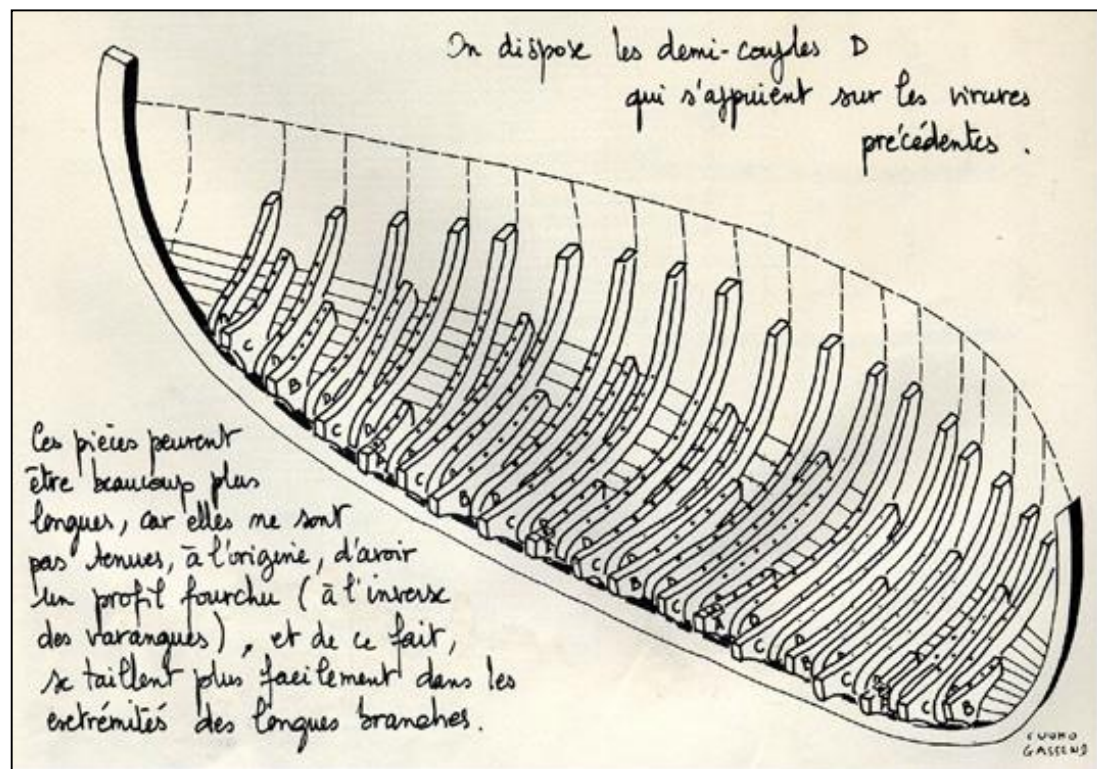 On dispose les demi-couples D
qui s'appuient sur les virures
précédentes.
Ces pièces peuvent
être beaucoup plus
longues, car elles ne sont
pas tenues, à l'origine, d'avoir
un profil fourchu (à l'inverse
des varangues), et de ce fait,
se taillent plus facilement dans les
extrémités des longues branches.
C
D
B
D
C
D
C
B
D
C
C
B
C
A
C
D
B
C
C
B
CUOMO
GASSEND